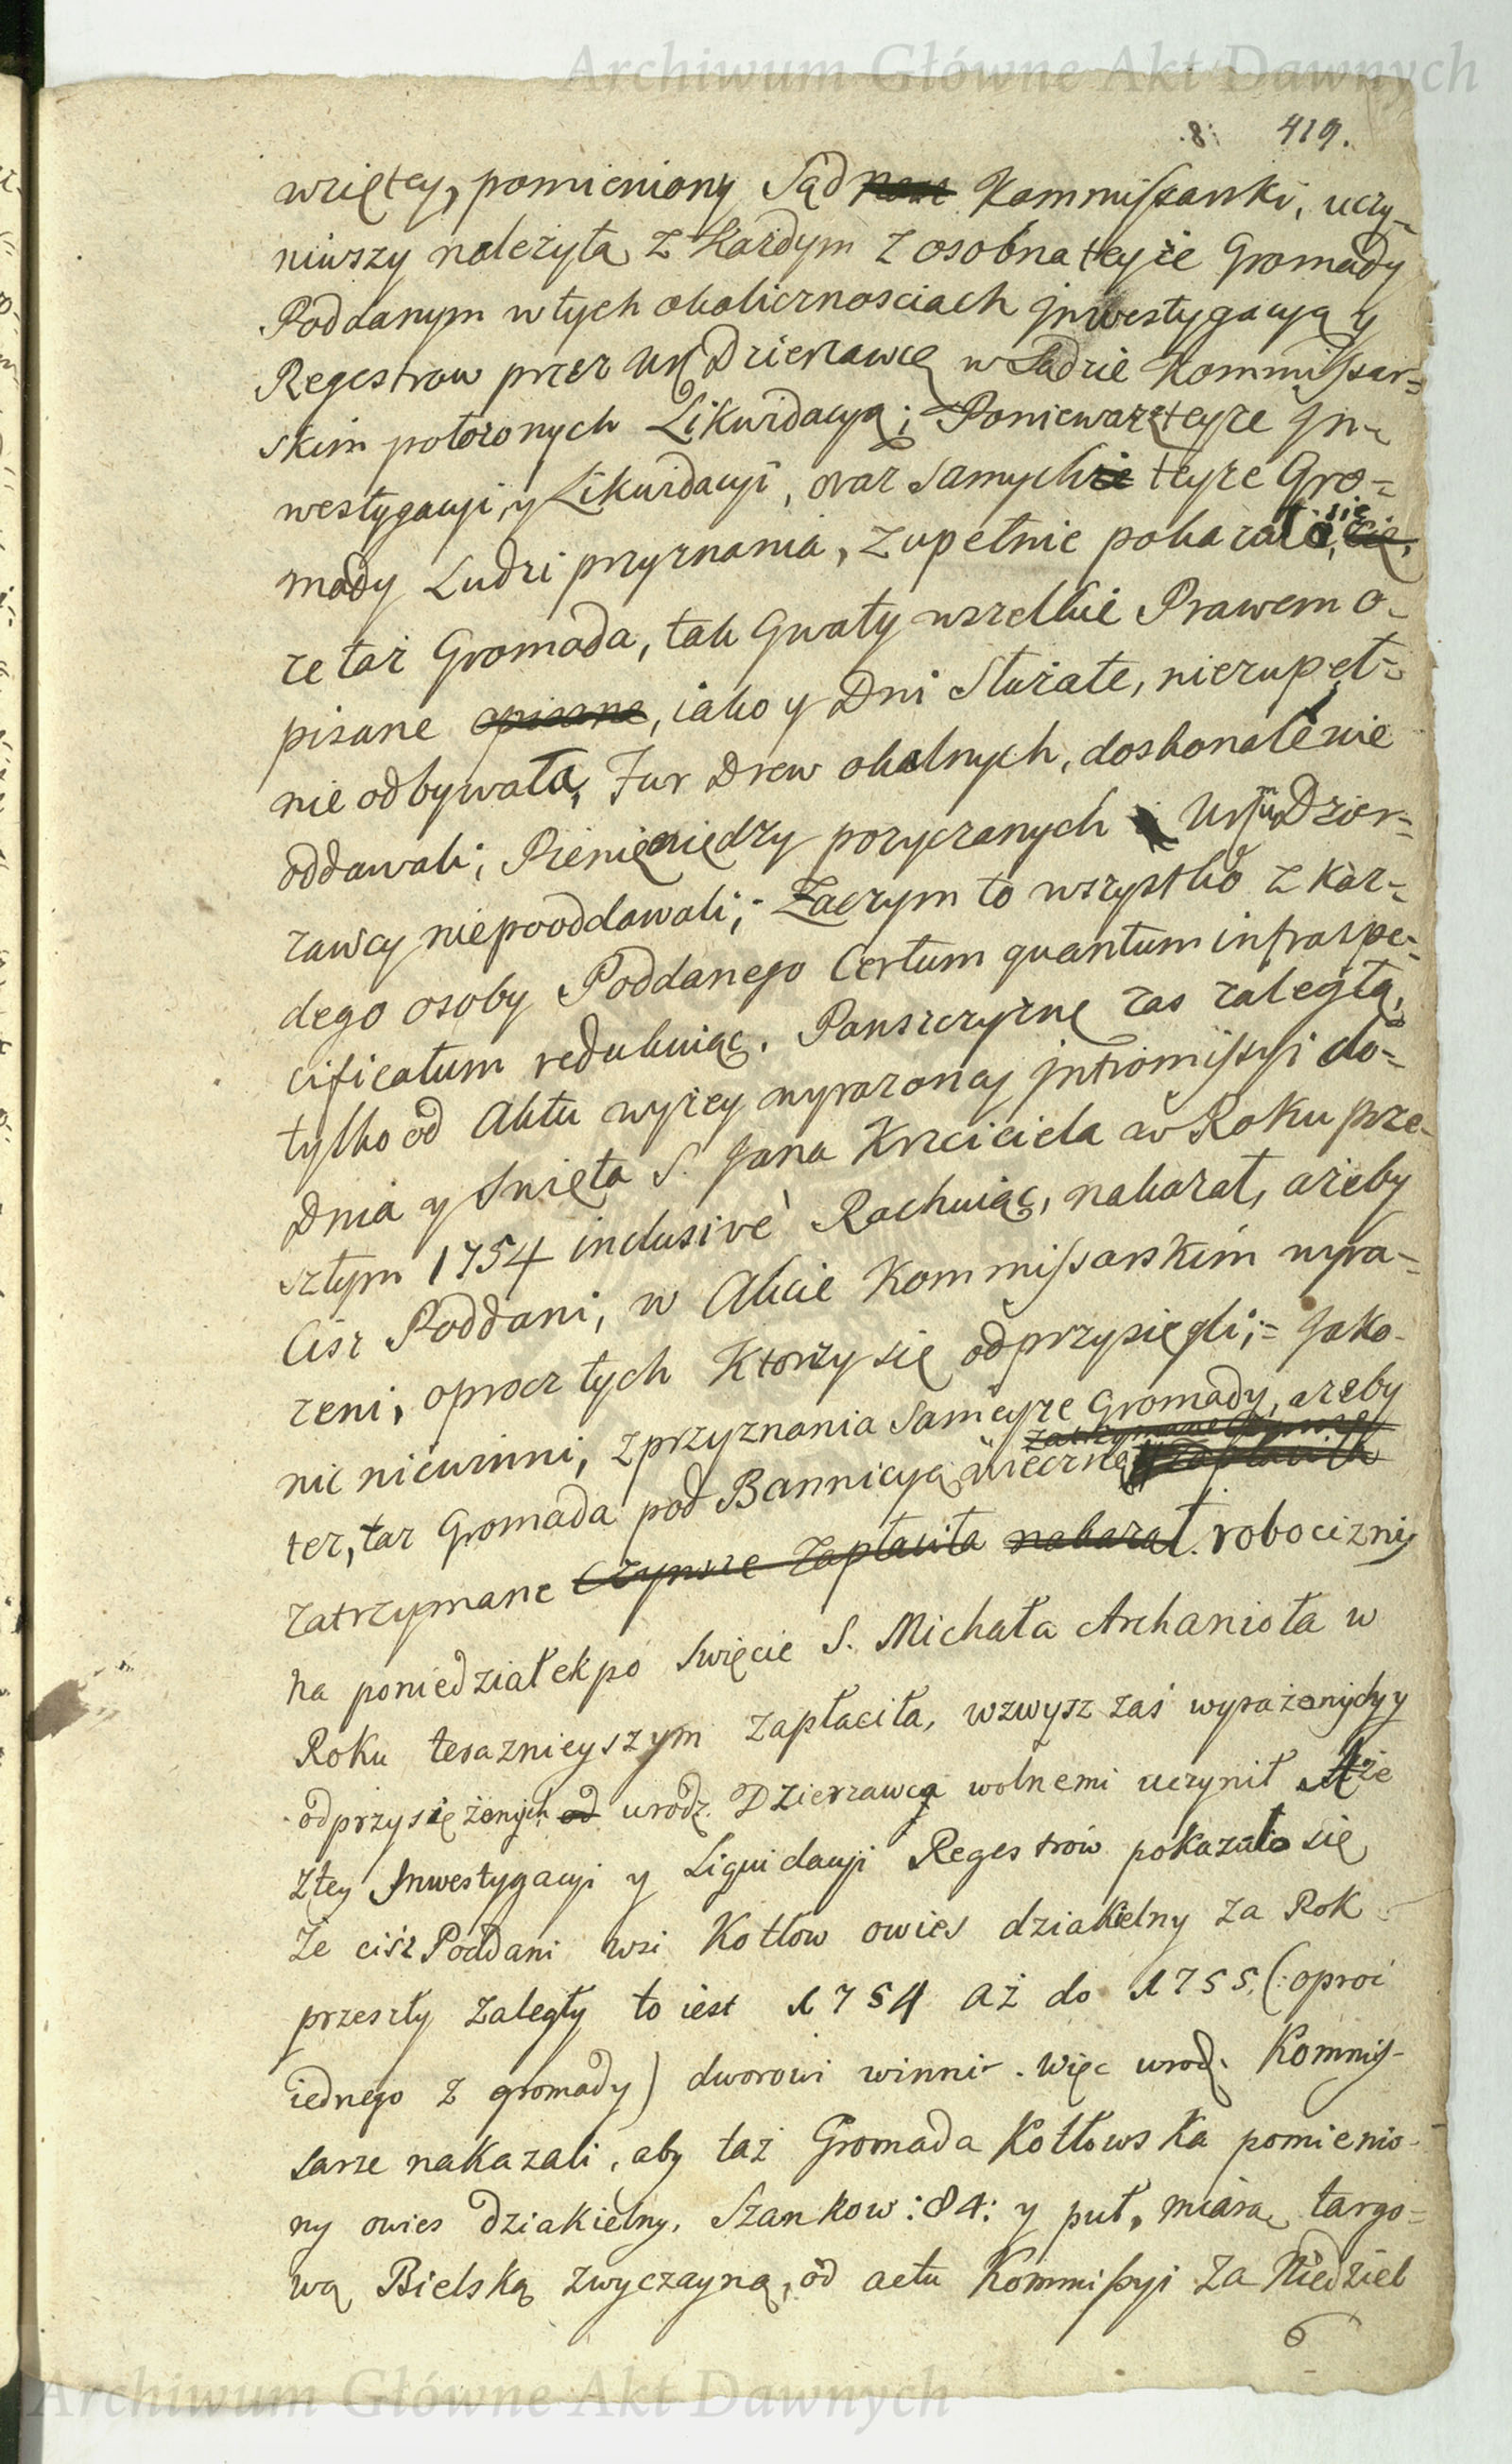 Archiwum Główne Akt Dawnych
8: 419.
wzięte​y, pomieniony Sąd Kommissarski, uczy-
niwszy nalezytą z Kazdym z osobna teyze Gromady
Poddanym w tych okolicznosciach jnwestygacyą y
Regestrow przez Ur Dzierzawcę w Sądzie Kommissar=
skim polozonych Likwidacyą; Poniewaz z teyze Jn=
westygacyi, y Likwidacyi, oraz samych teyze Gro=
mady Ludzi przyznania, zupełnie pokazało się
ze taz Gromada, tak Gwałty wszelkie Prawem o=
pisane opisane, iako y Dni Stużałe, niezupeł=
nie odbywała, Fur Drew okolnych, doskonale nie
oddawali; Pieniędzy pozyczanych Ur Dzier=
zawcy niepooddawali;- Zaczym to wszystko z kaz=
dego osoby Poddanego Certum quantum infraspe=
cificatum redukuiąc. Panszczyznę zas zaległą,
tylko od Aktu wyzey wyrazoney jntromissyi do=
Dnia y Swięta S. Jana Krzciciela w Roku prze=
szłym 1754 inclusivè Rachuiąc, nakazał, azeby
Cisz Poddani, w Akcie Kommissarskim wyra=
zeni, oprocz tych Ktorzy się odprzysięgli;= Jako
nic niewinni, z przyznania Sameyze Gromady, azeby
zatrzymane Czynsze
tez, taz Gromada pod Bannicyą wieczną zapłaciła
zatrzymane Czynsze zapłaciła nakazał. robocizny
na poniedziałek po Swięcie S. Michała Archanioła w
Roku teraznieyszym zapłaciła, wzwysz zaś wyrażonych y
odprzysiężonych od urodz. Dzierzawcą wolnemi uczynił Aże
z tey Jnwestygacyi y Liquidacyi Regestrów pokazało się
że ciśz Poddani wsi Kotłow owies dziakielny za Rok
przeszły zaległy to iest 1754 aż do 1755. (: oproć
iednego z gromady) dworowi winni. Więc urodz. Kommis-
sarze nakazali, aby taż Gromada Kotłowska pomienio-
ny owies dziakielny, Szankow: 84: y puł, miarą targo=
wą Bielską zwyczayną, od actu Kommissyi za Niedziel
6
Archiwum Główne Akt Dawnych